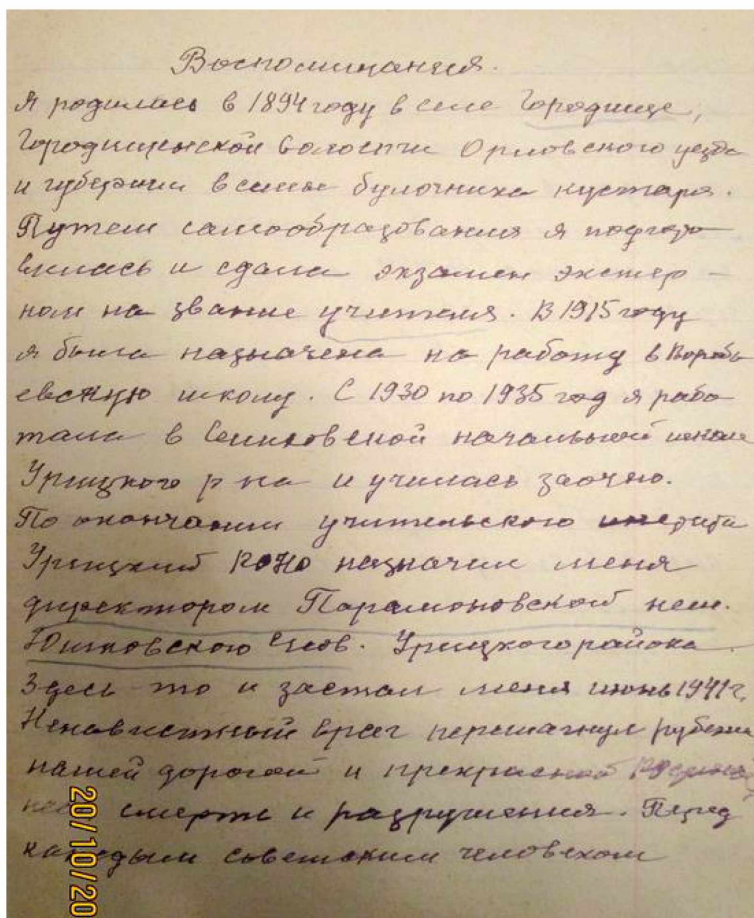 Воспоминания.
Я родилась в 1894 году в селе Городище,
Городищенской волости Орловского уезда
и губернии в семье булочника кустаря.
Путем самообразования я подгото-
вилась и сдала экзамен экстер-
ном на звание учителя. В 1915 году
я была назначена на работу в Воробь
евскую школу. С 1930 по 1935 год я рабо
тала в начальной школе
Урицкого р на и училась заочно.
По окончании учительского
Урицкий РОНО назначил меня
директором Парамоновской неп.
Урицкого района.
Здесь то и застал меня июнь 1941 г.
Ненавистный враг перешагнул рубежи
нашей дорогой и прекрасной Родины,
смерть и разрушения. Перед
каждым советским человеком
20/10/20